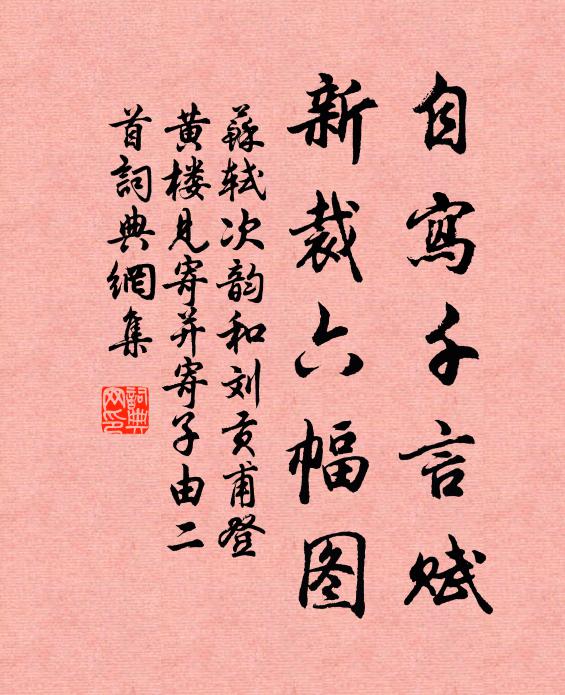 自寫千言赋
新裁六幅图
蘇轼次韵和刘贡甫登
黄楼见寄并寄子由二
首詞典網集
詞典
网印